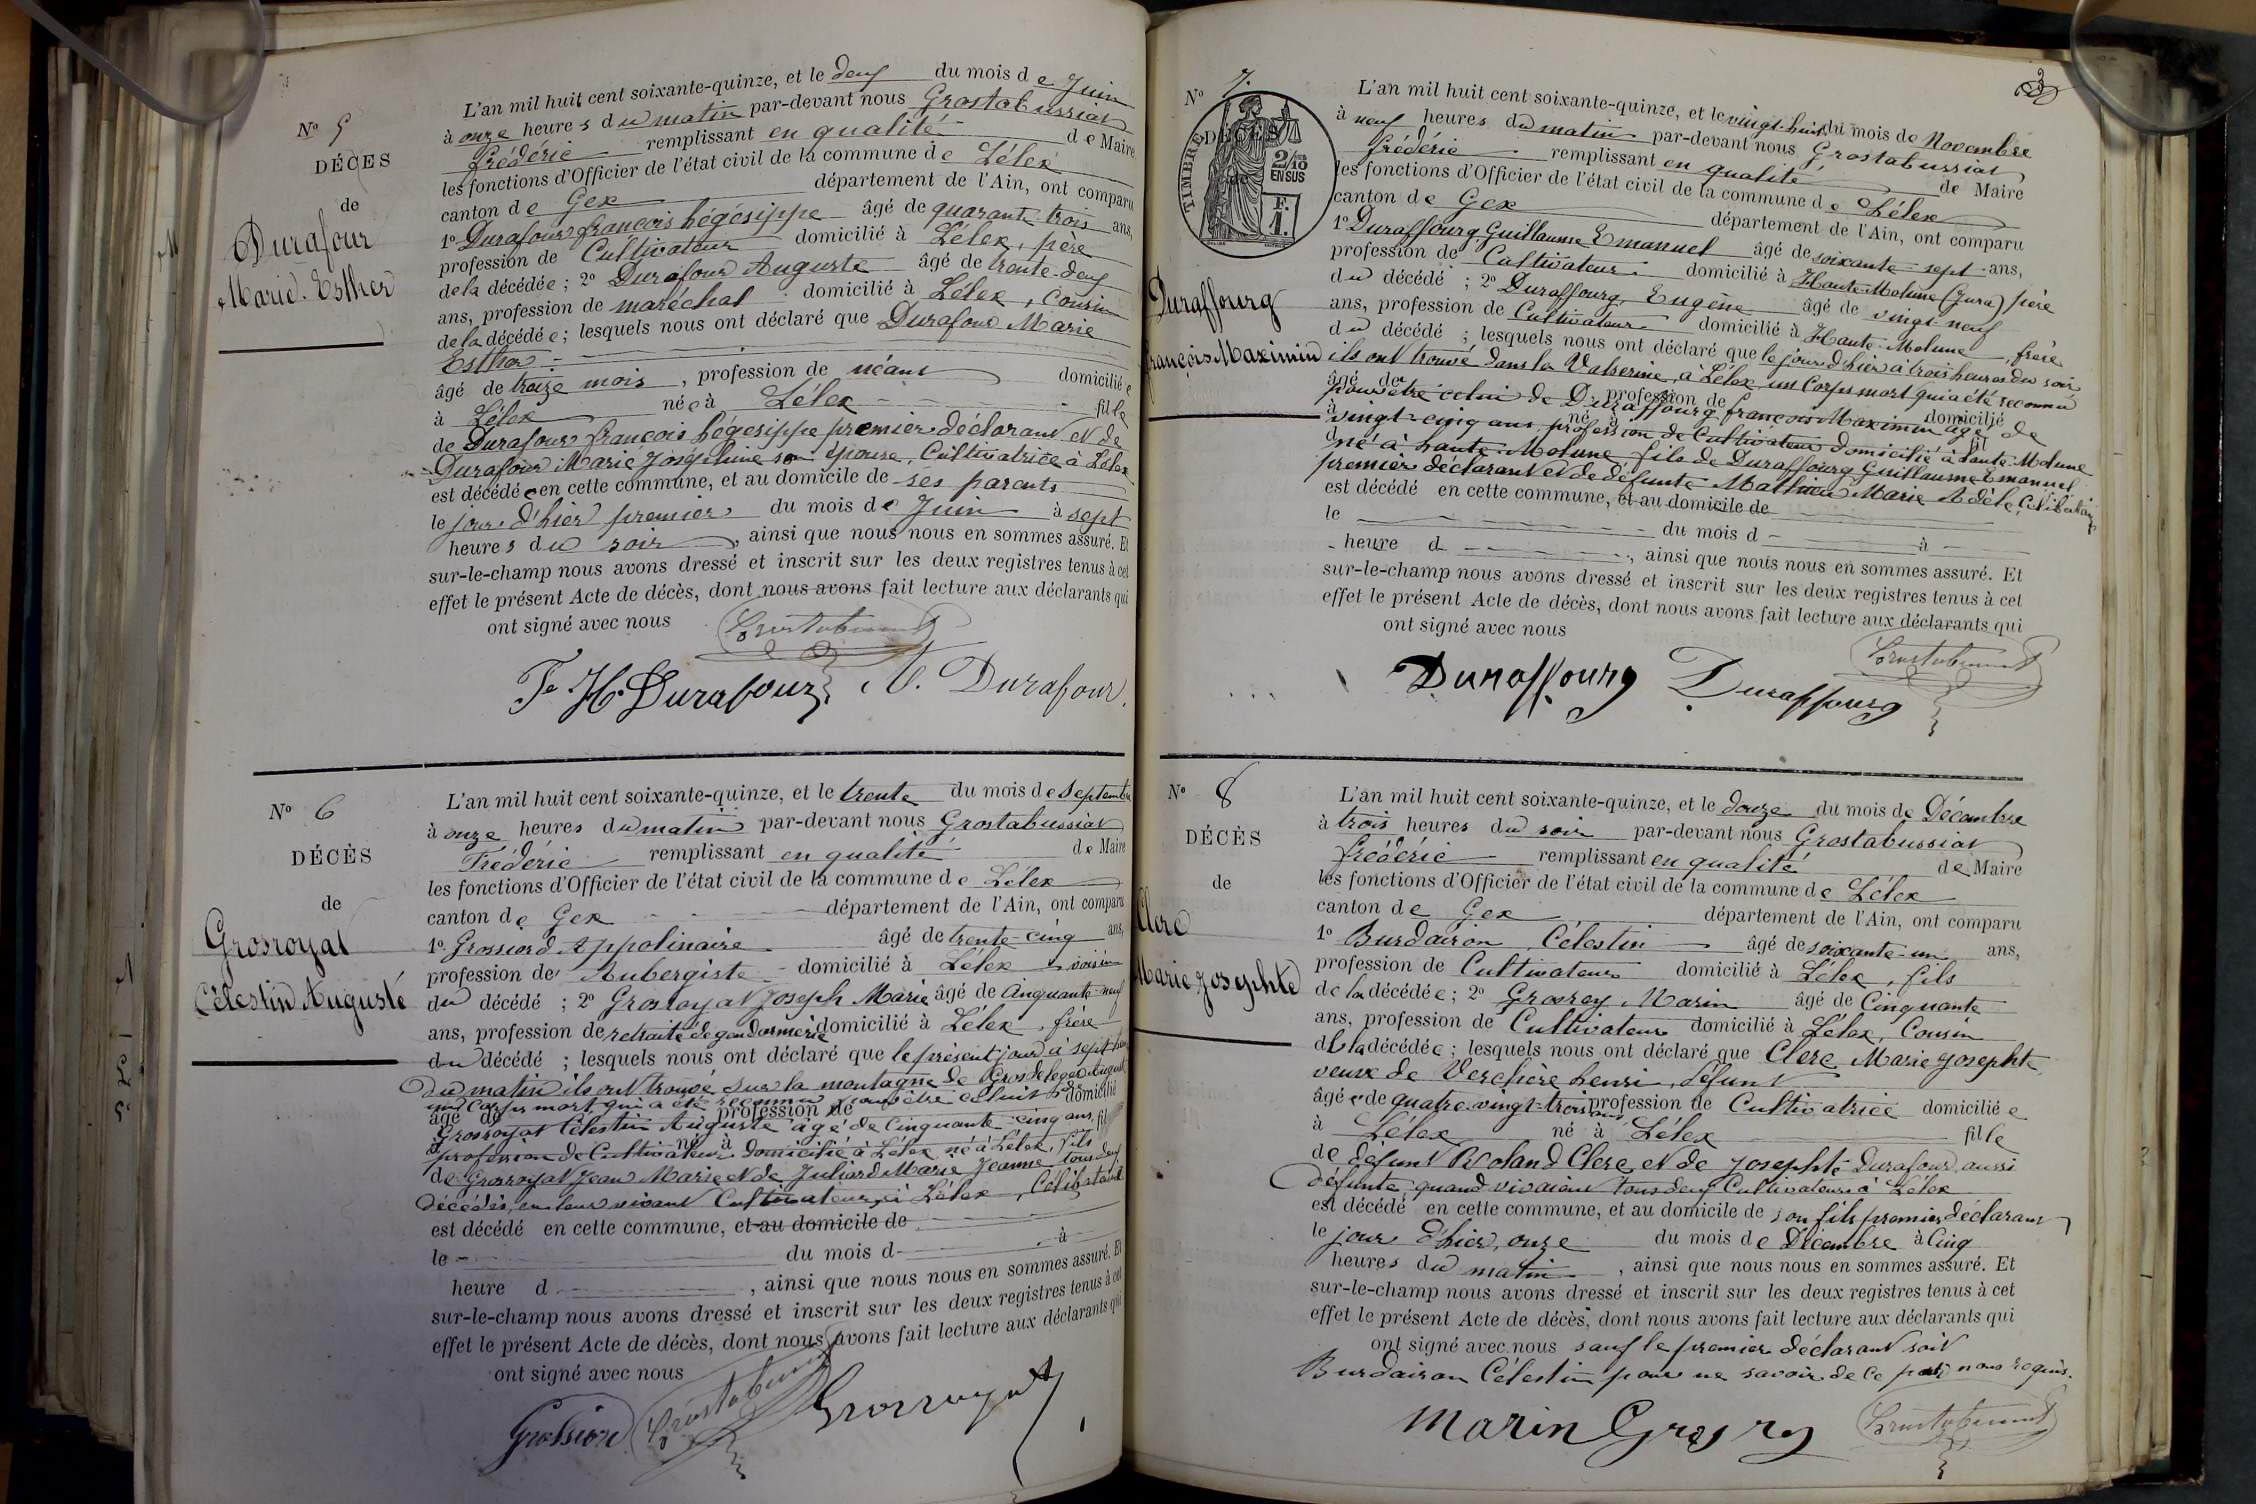 N° 5
DÉCES
de
Durafour
Marie Esther
L'an mil huit cent soixante-quinze, et le deux du mois de Juin
à onze heures du matin par-devant nous Grostabussiat
frédéric remplissant en qualité de Maire
les fonctions d'Officier de l'état civil de la commune de Lélex
canton de Gex département de l'Ain, ont comparu
1° Durafour françois hégésippe âgé de quarante trois ans,
profession de Cultivateur domicilié à Lélex, père
de la décédée ; 2° Durafour Auguste âgé de trente-deux
ans, profession de maréchal domicilié à Lélex, Cousin
de la décédée ; lesquels nous ont déclaré que Durafour Marie
Esther
âgé de treize mois, profession de néant domiciliée
à Lélex née à Lélex fille
de Durafour françois hégésippe premier déclarant et de
Durafour Marie Joséphine son épouse, Cultivatrice à Lélex
est décédée en cette commune, et au domicile de ses parents
le jour d'hier premier du mois de Juin à sept
heures du soir, ainsi que nous nous en sommes assuré. Et
sur-le-champ nous avons dressé et inscrit sur les deux registres tenus à cet
effet le présent Acte de décès, dont nous avons fait lecture aux déclarants qui
ont signé avec nous
Grostabussiat
F. H. Durafour A. Durafour
N° 6
DÉCÈS
de
Grosroyat
Célestin Auguste
L'an mil huit cent soixante-quinze, et le trente du mois de Septembre
à onze heures du matin par-devant nous Grostabussiat
Frédéric remplissant en qualité de Maire
les fonctions d'Officier de l'état civil de la commune de Lélex
canton de Gex département de l'Ain, ont comparu
1° Grossiord Appolinaire âgé de trente-cinq ans,
profession de Aubergiste domicilié à Lélex voisin
du décédé ; 2° Grosroyat Joseph Marie âgé de Cinquante-neuf
ans, profession de retraité de gendarmerie domicilié à Lélex, frère
du décédé ; lesquels nous ont déclaré que le présent jour à sept heures
du matin ils ont trouvé sur la montagne de
un Corps mort qui a été reconnu pour être celui de
âgé de profession de domicilié
Grosroyat Célestin Auguste âgé de Cinquante-cinq ans, fil
à né à
profession de Cultivateur domicilié à Lélex né à Lélex, fils
de Grosroyat Jean Marie et de Juliard Marie Jeanne tous deux
décédés, en leur vivant Cultivateurs à Lélex, Célibataire
est décédé en cette commune, et au domicile de
le du mois d à
heure d , ainsi que nous nous en sommes assuré. Et
sur-le-champ nous avons dressé et inscrit sur les deux registres tenus à cet
effet le présent Acte de décès, dont nous avons fait lecture aux déclarants qui
ont signé avec nous
Grossiord Grostabussiat Grosroyat
N° 7.
DÉCÈS
TIMBRE
2/10
EN SUS
F.
1.
Duraffourg
françois Maximin
L'an mil huit cent soixante-quinze, et le vingt-huit du mois de Novembre
à neuf heures du matin par-devant nous Grostabussiat
frédéric remplissant en qualité de Maire
les fonctions d'Officier de l'état civil de la commune de Lélex
canton de Gex département de l'Ain, ont comparu
1° Duraffourg Guillaume Emanuel âgé de soixante-sept ans,
profession de Cultivateur domicilié à Haute-Molune (Jura) père
du décédé ; 2° Duraffourg, Eugène âgé de vingt-neuf
ans, profession de Cultivateur domicilié à Haute-Molune, frère
du décédé ; lesquels nous ont déclaré que le jour d'hier à trois heures du soir
ils ont trouvé dans la Valserine, à Lélex un Corps mort qui a été reconnu
âgé de profession de domicilié
pour être celui de Duraffourg françois Maximin âgé de
à né à fil
vingt-cinq ans profession de Cultivateur domicilié à haute-Molune
né à haute-Molune fils de Duraffourg Guillaume Emanuel
premier déclarant et de défunte Mathieu Marie Adèle, Célibataire
est décédé en cette commune, et au domicile de
le du mois d à
heure d , ainsi que nous nous en sommes assuré. Et
sur-le-champ nous avons dressé et inscrit sur les deux registres tenus à cet
effet le présent Acte de décès, dont nous avons fait lecture aux déclarants qui
ont signé avec nous
Grostabussiat
Duraffourg Duraffourg
N° 8
DÉCÈS
de
Clerc
Marie Josephte
L'an mil huit cent soixante-quinze, et le douze du mois de Décembre
à trois heures du soir par-devant nous Grostabussiat
frédéric remplissant en qualité de Maire
les fonctions d'Officier de l'état civil de la commune de Lélex
canton de Gex département de l'Ain, ont comparu
1° Burdairon, Célestin âgé de soixante-un ans,
profession de Cultivateur domicilié à Lélex, fils
de la décédée ; 2° Grosrey, Marin âgé de Cinquante
ans, profession de Cultivateur domicilié à Lélex, Cousin
de la décédée ; lesquels nous ont déclaré que Clerc Marie Josephte
veuve de Verchère henri, défunt
âgée de quatre-vingt-trois ans profession de Cultivatrice domiciliée
à Lélex né à Lélex fille
de défunt Roland Clerc et de Josephte Durafour, aussi
défunte, quand vivaient tous deux Cultivateurs à Lélex
est décédé en cette commune, et au domicile de son fils premier déclarant
le jour d'hier, onze du mois de Décembre à Cinq
heures du matin, ainsi que nous nous en sommes assuré. Et
sur-le-champ nous avons dressé et inscrit sur les deux registres tenus à cet
effet le présent Acte de décès, dont nous avons fait lecture aux déclarants qui
ont signé avec nous sauf le premier déclarant soit
Burdairon Célestin pour ne savoir de ce par nous requis.
Marin Grosrey Grostabussiat